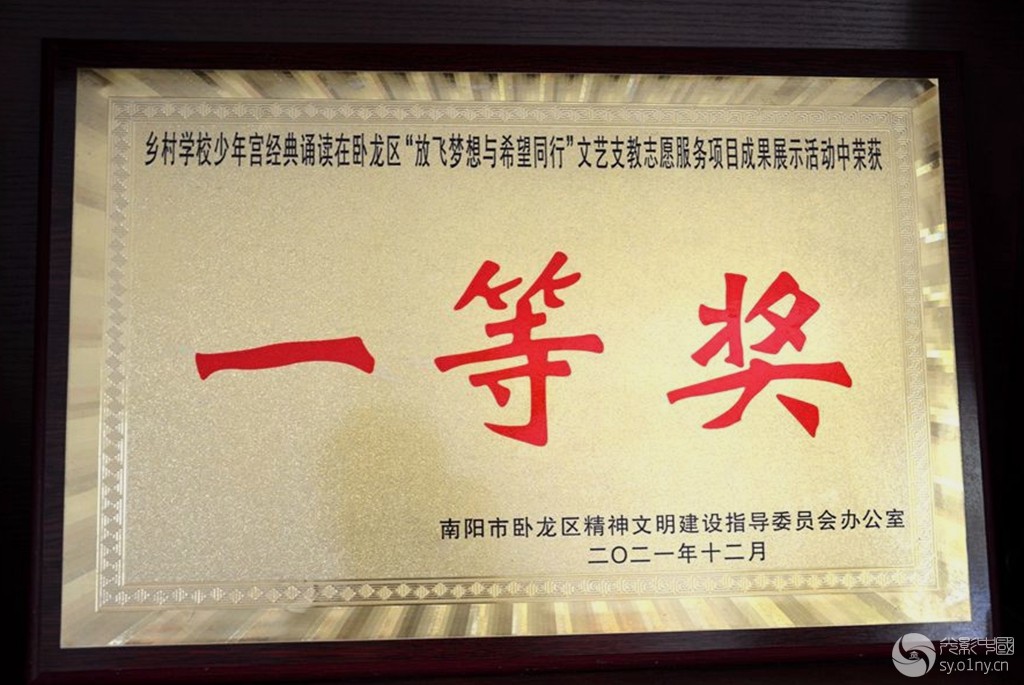 乡村学校少年宫经典诵读在卧龙区“放飞梦想与希望同行”文艺支教志愿服务项目成果展示活动中荣获
一等奖
南阳市卧龙区精神文明建设指导委员会办公室
二〇二一年十二月
光影中國
sy.o1ny.cn